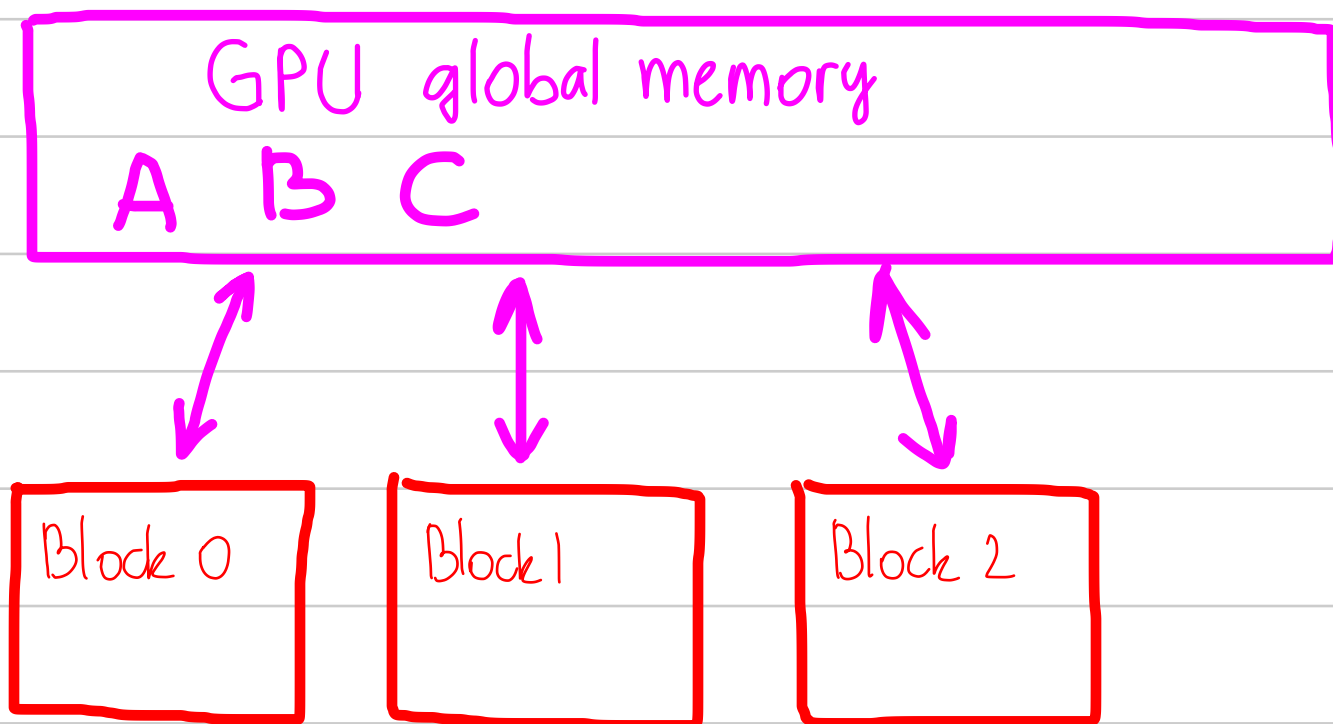 GPU global memory
A B C
Block 0
Block 1
Block 2